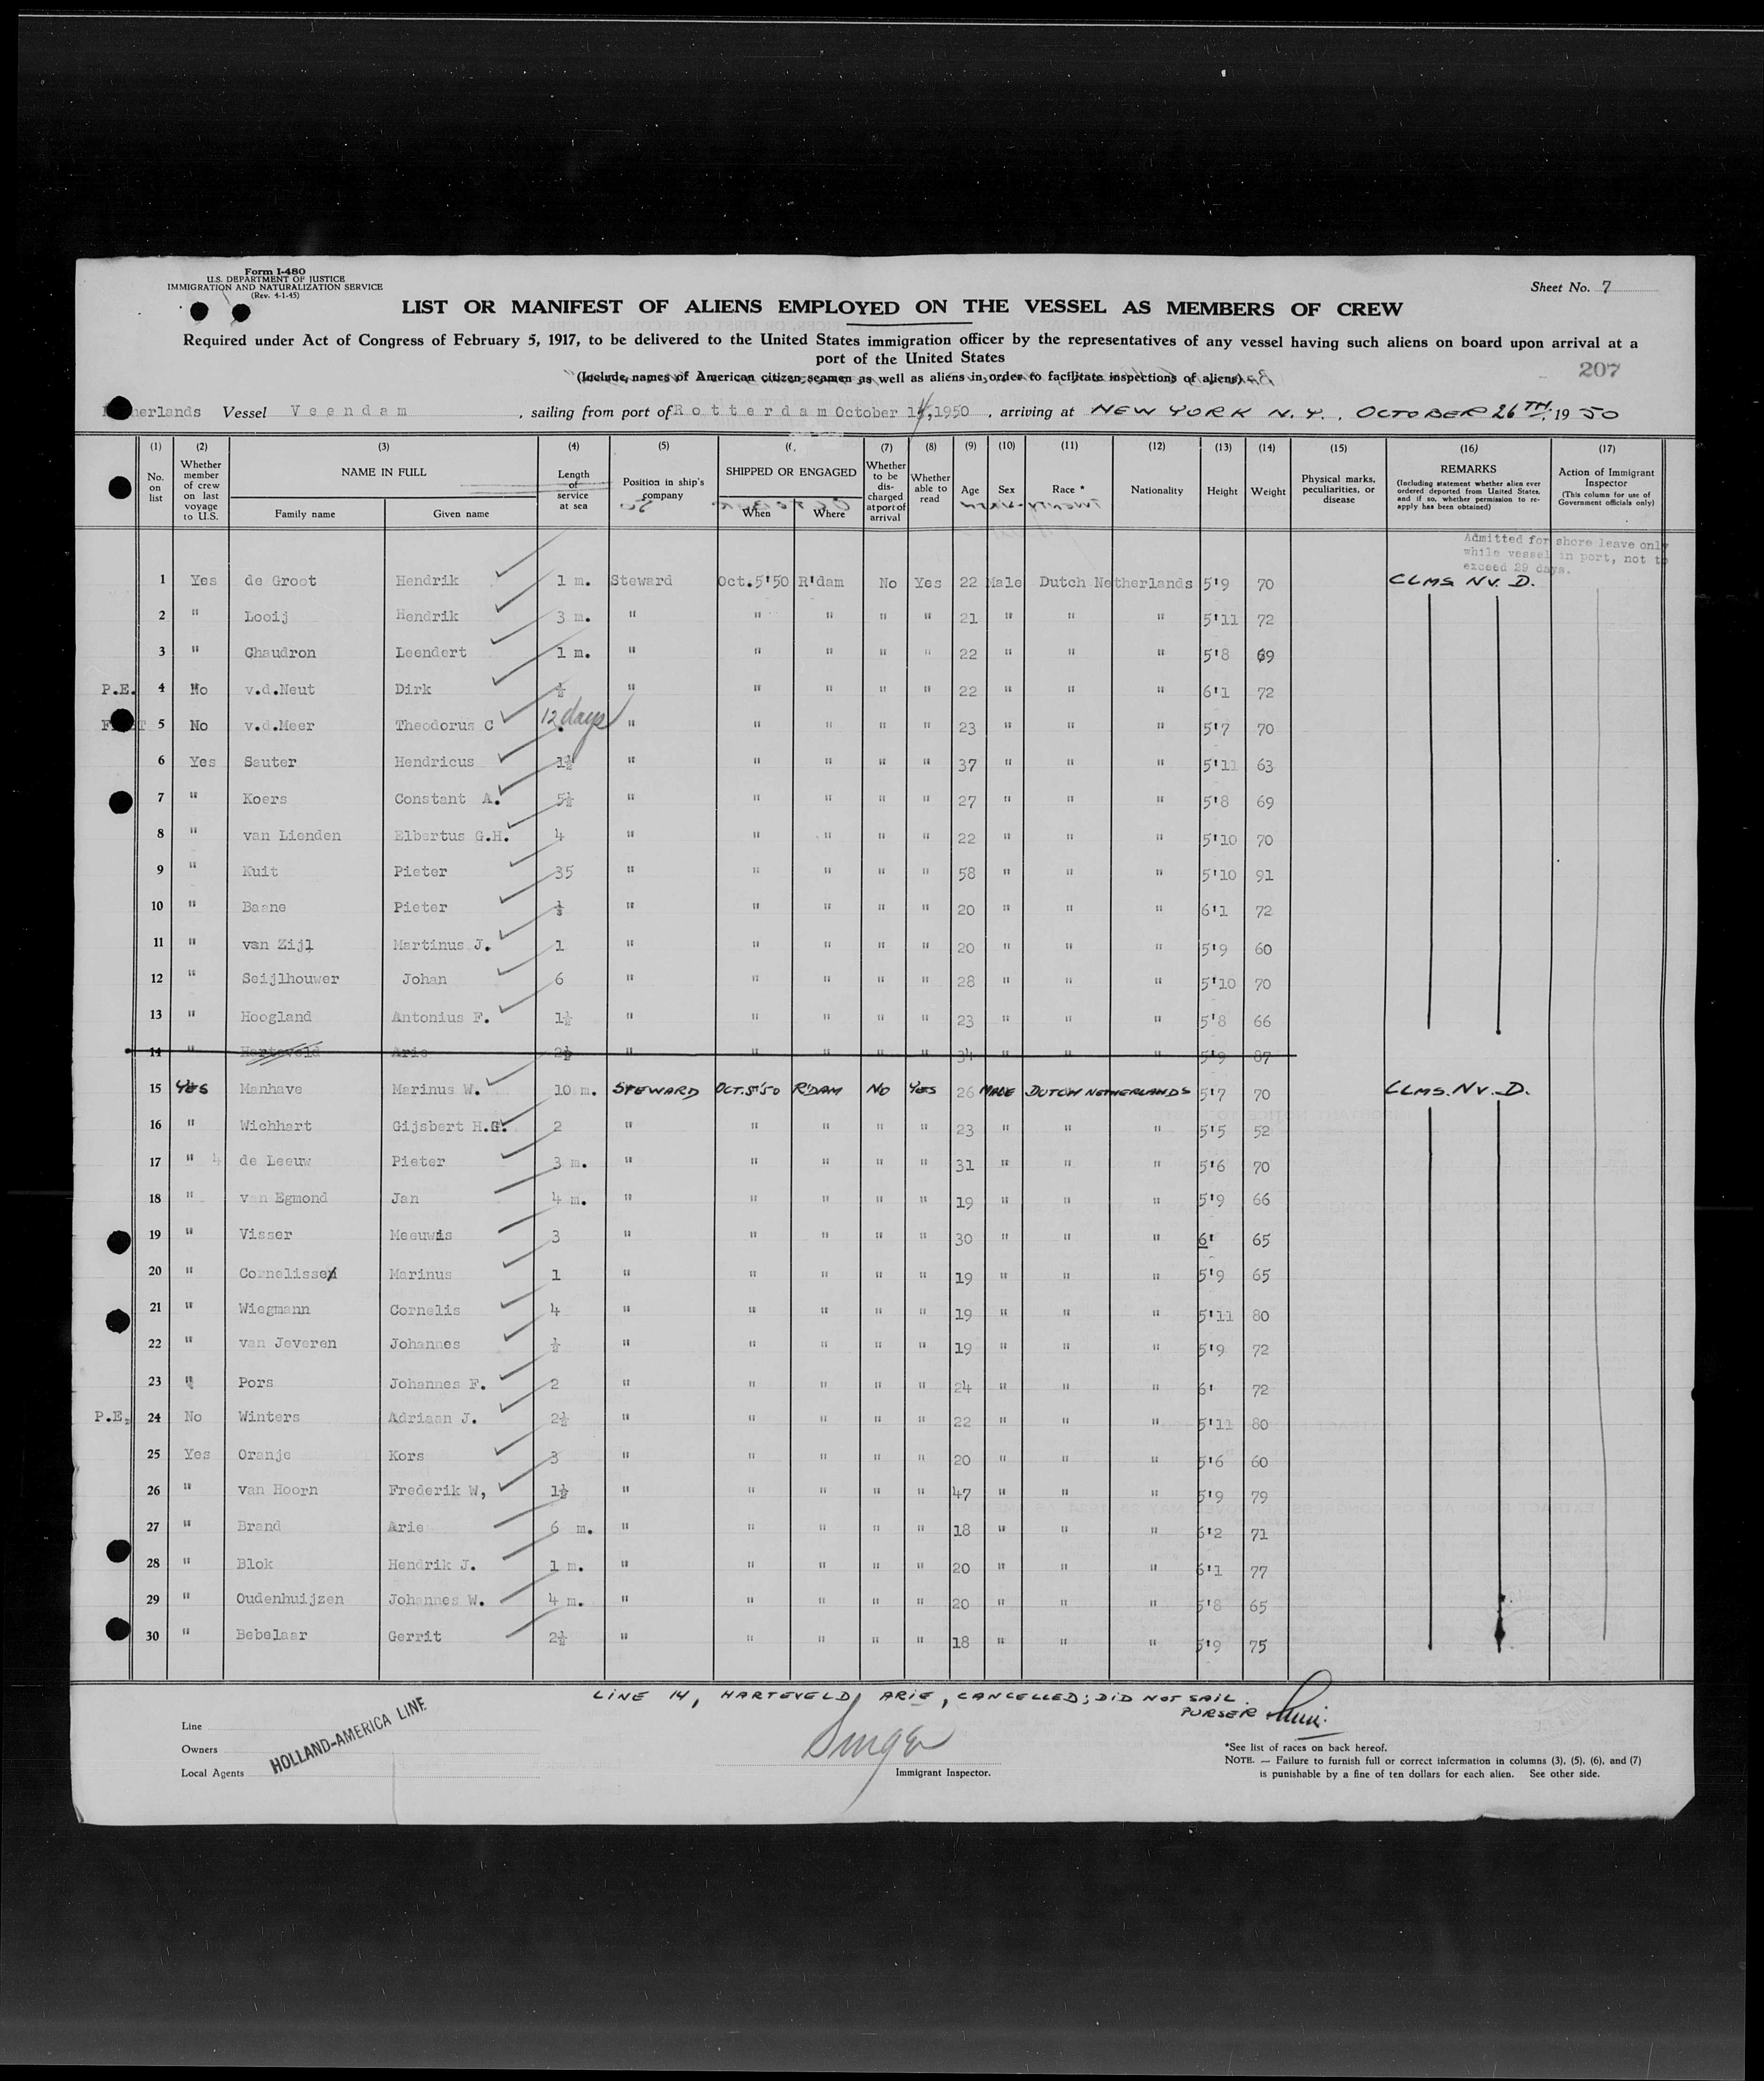 Form I-480
U.S. DEPARTMENT OF JUSTICE
IMMIGRATION AND NATURALIZATION SERVICE
(Rev. 4-1-45)
Sheet No. 7
LIST OR MANIFEST OF ALIENS EMPLOYED ON THE VESSEL AS MEMBERS OF CREW
Required under Act of Congress of February 5, 1917, to be delivered to the United States immigration officer by the representatives of any vessel having such aliens on board upon arrival at a
port of the United States
(Include names of American citizen seamen as well as aliens in order to facilitate inspections of aliens)
207
herlands Vessel Veendam, sailing from port of Rotterdam October 14, 1950, arriving at NEW YORK N.Y., OCTOBER 26TH, 1950
(1) (2) (3) (4) (5) (6) (7) (8) (9) (10) (11) (12) (13) (14) (15) (16) (17)
No. on list
Whether member of crew on last voyage to U.S.
NAME IN FULL
Family name Given name
Length of service at sea
Position in ship's company
SHIPPED OR ENGAGED
When Where
Whether to be discharged at port of arrival
Whether able to read
Age Sex Race * Nationality Height Weight
Physical marks, peculiarities, or disease
REMARKS
(Including statement whether alien ever ordered deported from United States, and if so, whether permission to reapply has been obtained)
Action of Immigrant Inspector
(This column for use of Government officials only)
Admitted for shore leave only
while vessel in port, not to
exceed 29 days.
1 Yes de Groot Hendrik 1 m. Steward Oct.5'50 R'dam No Yes 22 Male Dutch Netherlands 5'9 70 CLMS NV. D.
2 " Looij Hendrik 3 m. " " " " " 21 " " " 5'11 72
3 " Chaudron Leendert 1 m. " " " " " 22 " " " 5'8 69
P.E. 4 No v.d.Neut Dirk ½ " " " " " 22 " " " 6'1 72
5 No v.d.Meer Theodorus C 12 days " " " " " 23 " " " 5'7 70
6 Yes Sauter Hendricus 1½ " " " " " 37 " " " 5'11 63
7 " Koers Constant A. 5½ " " " " " 27 " " " 5'8 69
8 " van Lienden Elbertus G.H. 4 " " " " " 22 " " " 5'10 70
9 " Kuit Pieter 35 " " " " " 58 " " " 5'10 91
10 " Baane Pieter " " " " " 20 " " " 6'1 72
11 " van Zijl Martinus J. 1 " " " " " 20 " " " 5'9 60
12 " Seijlhouwer Johan 6 " " " " " 28 " " " 5'10 70
13 " Hoogland Antonius F. 1½ " " " " " 23 " " " 5'8 66
14 " Harteveld Arie 2½ " " " " " 34 " " " 5'9 87
15 YES Manhave Marinus W. 10 m. STEWARD OCT.5'50 R'DAM NO YES 26 MALE DUTCH NETHERLANDS 5'7 70 CLMS. NV. D.
16 " Wichhart Gijsbert H.G. 2 " " " " " 23 " " " 5'5 52
17 " 4 de Leeuw Pieter 3 m. " " " " " 31 " " " 5'6 70
18 " van Egmond Jan 4 m. " " " " " 19 " " " 5'9 66
19 " Visser Meeuwis 3 " " " " " 30 " " " 6' 65
20 " Cornelissen Marinus 1 " " " " " 19 " " " 5'9 65
21 " Wiegmann Cornelis 4 " " " " " 19 " " " 5'11 80
22 " van Jeveren Johannes ½ " " " " " 19 " " " 5'9 72
23 " Pors Johannes F. 2 " " " " " 24 " " " 6' 72
P.E. 24 No Winters Adriaan J. 2½ " " " " " 22 " " " 5'11 80
25 Yes Oranje Kors 3 " " " " " 20 " " " 5'6 60
26 " van Hoorn Frederik W, 1½ " " " " " 47 " " " 5'9 79
27 " Brand Arie 6 m. " " " " " 18 " " " 6'2 71
28 " Blok Hendrik J. 1 m. " " " " " 20 " " " 6'1 77
29 " Oudenhuijzen Johannes W. 4 m. " " " " " 20 " " " 5'8 65
30 " Bebelaar Gerrit 2½ " " " " " 18 " " " 5'9 75
LINE 14, HARTEVELD, ARIE, CANCELLED; DID NOT SAIL.
PURSER
Line
Owners
Local Agents
HOLLAND-AMERICA LINE
Immigrant Inspector.
*See list of races on back hereof.
NOTE. — Failure to furnish full or correct information in columns (3), (5), (6), and (7)
is punishable by a fine of ten dollars for each alien. See other side.